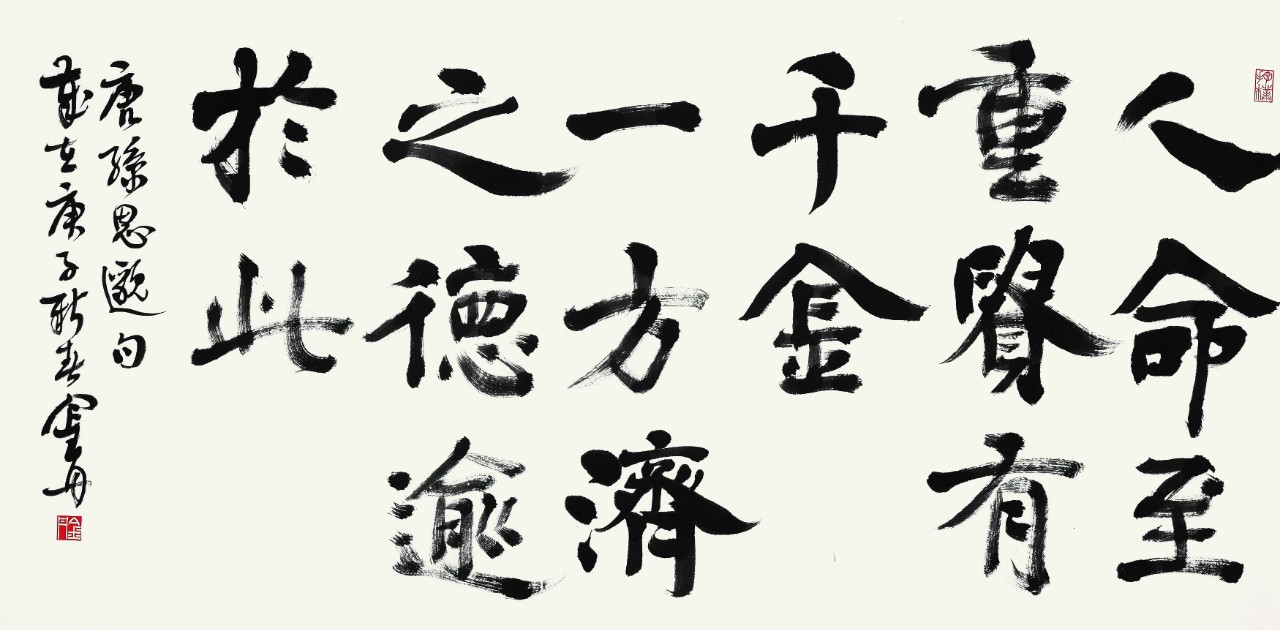 人命至
重賢有
千金
一方濟
之德逾
於此
唐孫思邈句
歲在庚子新春金丹